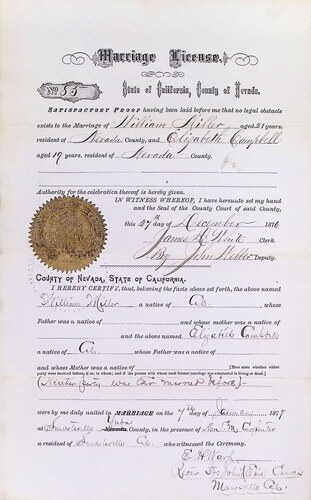 Marriage License.
No. 55
State of California, County of Nevada.
SATISFACTORY PROOF having been laid before me that no legal obstacle
exists to the Marriage of William Miller, aged 21 years,
resident of Nevada County, and Elizabeth Campbell
aged 19 years, resident of Nevada County.
Authority for the celebration thereof is hereby given.
IN WITNESS WHEREOF, I have hereunto set my hand
and the Seal of the County Court of said County,
this 27th day of December 1876
James Clerk.
By John Webber Deputy.
COUNTY OF NEVADA, STATE OF CALIFORNIA.
I HEREBY CERTIFY, that, believing the facts above set forth, the above named
William Miller a native of Cal. whose
Father was a native of and whose mother was a native
of and the above named Elizabeth Campbell
a native of Cal. whose Father was a native of
and whose Mother was a native of [Here state whether either
party were married before, if so, to whom, and if the person with whom such former marriage was contracted is living or dead.]
(Neither party was ever married before)
were by me duly united in MARRIAGE on the 7th day of January 1877
at Smartsville Yuba Nevada County, in the presence of M. Carpenter
a resident of Smartsville Cal. who witnessed the Ceremony.
E. H. Ward
Rector St. John's Epis. Church
Marysville Cal.